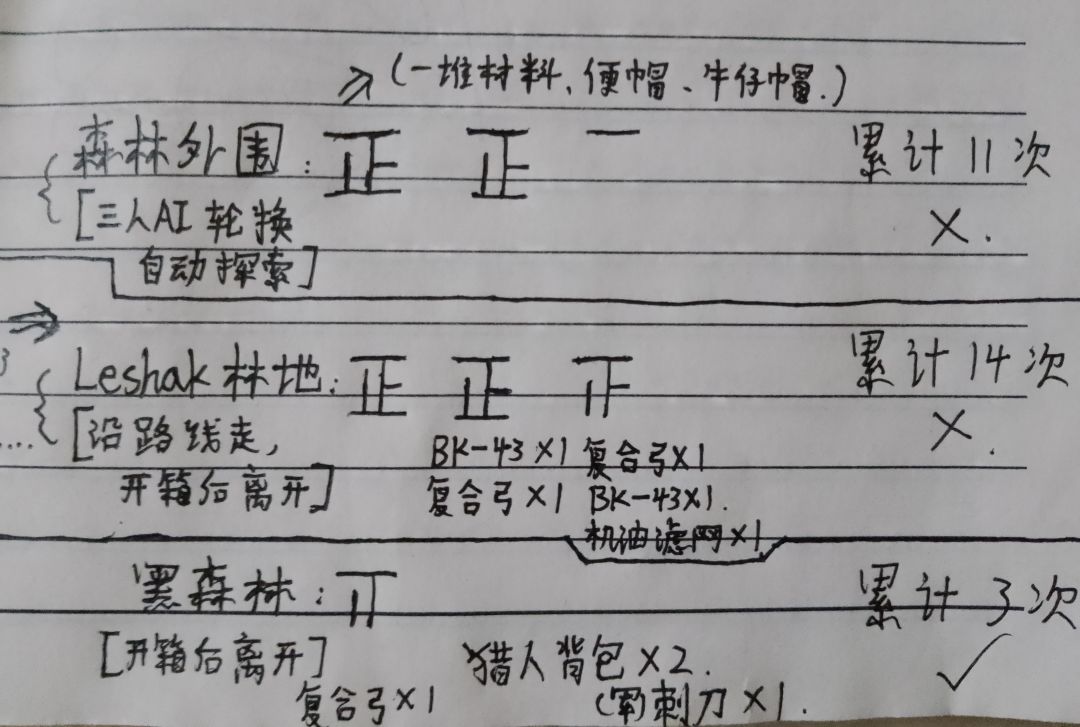 (一堆材料、便帽、牛仔帽.)
森林外围: 正 正 一 累计11次
[三人AI轮换 ×.
自动探索]
Leshak林地: 正 正 累计14次
[沿路线走, ×.
开箱后离开]
BK-43×1 复合弓×1
复合弓×1 BK-43×1.
机油滤网×1
黑森林: 累计3次
[开箱后离开] 猎人背包×2. ✓
复合弓×1 (军)刺刀×1.